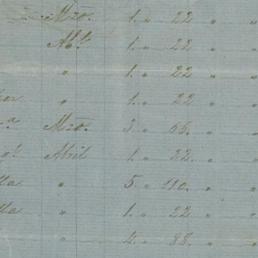 Mzo. 1. " 22 " "
Abl. 1. " 22 " "
" 1. " 22 " "
" 1. " 22 " "
Mzo. 3. " 66. " "
Abril 1. " 22. " "
" 5. " 110. " "
" 1. " 22 " "
4. " 88. " "